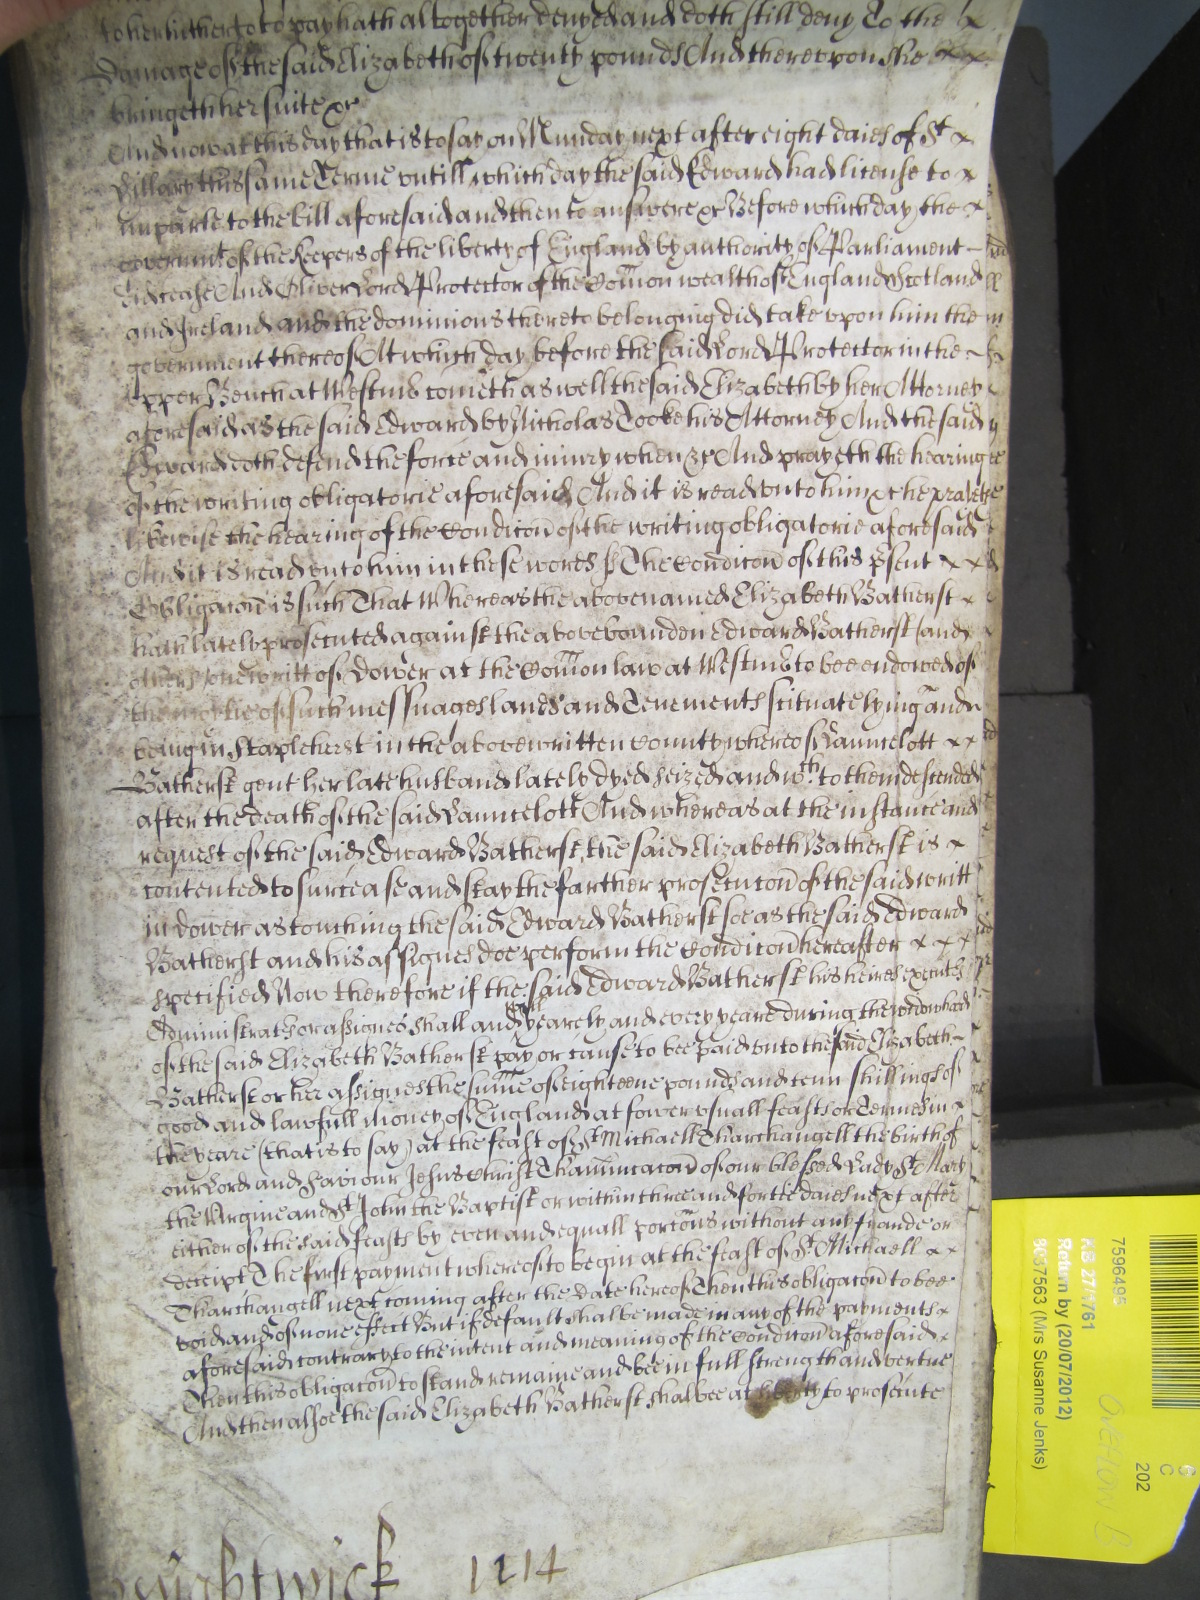 to her hitherto to pay hath altogether denyed and doth still deny To the x
Damage of the said Elizabeth of twenty pounds And therevpon she x x
bringeth her suite &c
And now at this day that is to say on Munday next after eight daies of St x
Hillary this same Terme vntill which day the said Edward had license to x
imparle to the bill aforesaid and then to answere &c Before which day the x
governmt of the Keepers of the liberty of England by authority of Parliament
did cease And Oliver Lord Protector of the Com̄on wealth of England Scotland
and Ireland and the dominions thereto belonging did take vpon him the
government thereof At which day before the said Lord Protector in the
vpper Bench at Westmr cometh as well the said Elizabeth by her Attorney
aforesaid as the said Edward by Nicholas Tooke his Attorney And the said
Edward doth defend the force and iniury when &c And prayeth the hearing
of the writing obligatorie aforesaid And it is read vnto him &c he prayeth
likewise the hearing of the Condicōn of the writing obligatorie aforesaid
And it is read vnto him in these words ss The Condicōn of this p̄sent x x
Obligacōn is such That Whereas the abovenamed Elizabeth Batherst x
hath lately prosecuted against the abovebounden Edward Batherst (and
others) one writt of Dower at the Com̄on law at Westmr to bee endowed of
the moytie of such messuages lands and Tenements scituate lying and
being in Stapleherst in the abovewritten County whereof Launcelott x x
Batherst gent her late husband lately dyed seized and wch to them descended
after the death of the said Launcelott And whereas at the instance and
request of the said Edward Batherst the said Elizabeth Batherst is x
contented to surcease and stay the farther prosecucōn of the said writt
in dower as touching the said Edward Batherst soe as the said Edward
Batherst and his assignes doe performe the Condicōn hereafter x x x
specified Now therefore if the said Edward Batherst his heires executors
Administrators or assignes shall and yearely and every yeare during the widowhood
of the said Elizabeth Batherst pay or cause to bee paid vnto the said Elizabeth
Batherst or her assignes the sum̄e of eighteene pounds and tenn shillings of
good and lawfull money of England at fower vsuall feasts or Termes in x
the yeare (that is to say) at the feast of St Michaell Tharchangell the birth of
our Lord and Saviour Jesus Christ Thannunciacōn of our blessed Lady St Mary
the Virgine and St John the Baptist or within three and fortie daies next after
either of the said feasts by even and equall porcōns without any fraude or
deceipt The first payment whereof to begin at the feast of St Michaell x x
Tharchangell next coming after the date hereof Then this obligacōn to bee
void and of none effect But if default shalbe made in any of the payments x
aforesaid contrary to the intent and meaning of the Condicōn aforesaid x
Then this obligacōn to stand remaine and bee in full strength and vertue
And then alsoe the said Elizabeth Batherst shalbee at liberty to prosecute
1214
7596495
KB 27/1761
Return by (20/07/2012)
8037563 (Mrs Susanne Jenks)
C
202